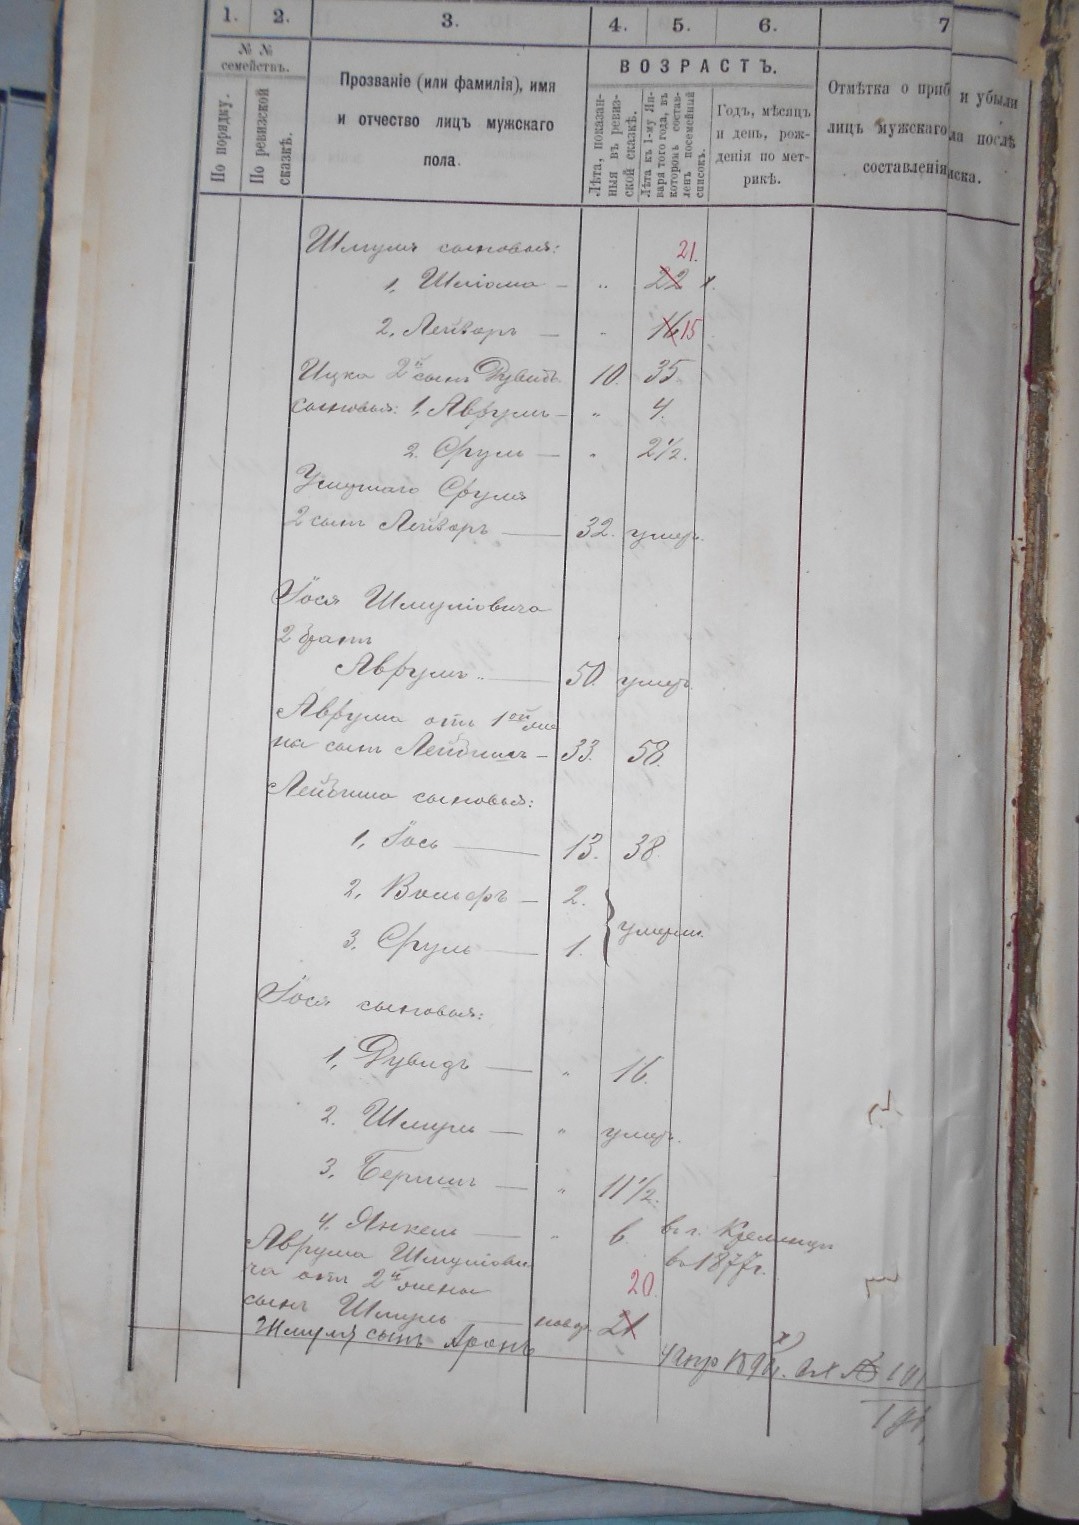 1. 2. 3. 4. 5. 6. 7
№ № семействъ.
По порядку.
По ревизской сказкѣ.
Прозваніе (или фамилія), имя
и отчество лицъ мужскаго
пола.
ВОЗРАСТЪ.
Лѣта, показан-
ныя въ ревиз-
ской сказкѣ.
Лѣта къ 1-му Ян-
варя того года, въ
которомъ состав-
ленъ посемейный
списокъ.
Годъ, мѣсяцъ
и день, рож-
денія по мет-
рикѣ.
Отмѣтка о приб и убыли
лицъ мужскаго ла послѣ
составленія иска.
Шмуля сыновья: 21.
1. Шліома — „ 22 х.
2. Лейзоръ — „ 16 15
Ицка 2й сынъ Дувидъ 10. 35
сыновья: 1. Аврумъ — „ 4.
2. Сруль — „ 2½.
Умершаго Сруля
2 сынъ Лейзоръ — 32. умеръ.
Іося Шмуліовича
2 братъ
Аврумъ — 50. умеръ
Аврума отъ 1ой же
ны сынъ Лейбишъ — 33. 58.
Лейбиша сыновья:
1. Іось — 13. 38.
2. Вольфъ — 2.
умерли.
3. Сруль — 1.
Іося сыновья:
1. Дувидъ — „ 16.
2. Шмуль — „ умеръ.
3. Бершъ — „ 11½.
4. Янкель — „ 6. въ г. Кременцѣ
Аврума Шмуліови въ 1877 г.
ча отъ 2й жены 20.
сынъ Шмуль — 21
Шмуля сынъ Аронъ
№ 101